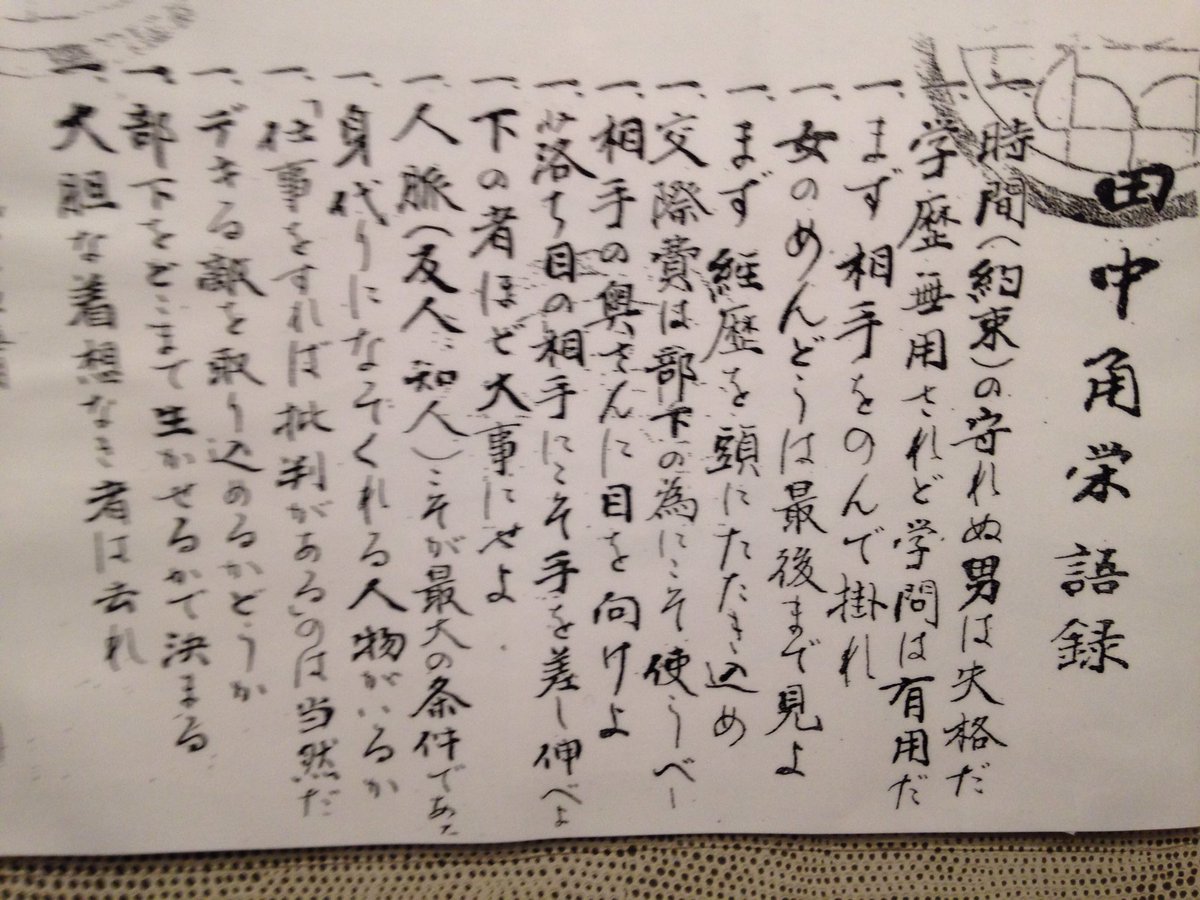 田中角栄語録
一、時間(約束)の守れぬ男は失格だ
一、学歴無用されど学問は有用だ
一、まず相手をのんで掛れ
一、女のめんどうは最後まで見よ
一、まず経歴を頭にたたき込め
一、交際費は部下の為にこそ使うべし
一、相手の奥さんに目を向けよ
一、落ち目の相手にこそ手を差し伸べよ
一、下の者ほど大事にせよ
一、人脈(友人、知人)こそが最大の条件である
一、身代りになってくれる人物がいるか
一、「仕事をすれば批判がある」のは当然だ
一、デキる敵を取り込めるかどうか
一、部下をどこまで生かせるかで決まる
一、大胆な着想なき者は去れ